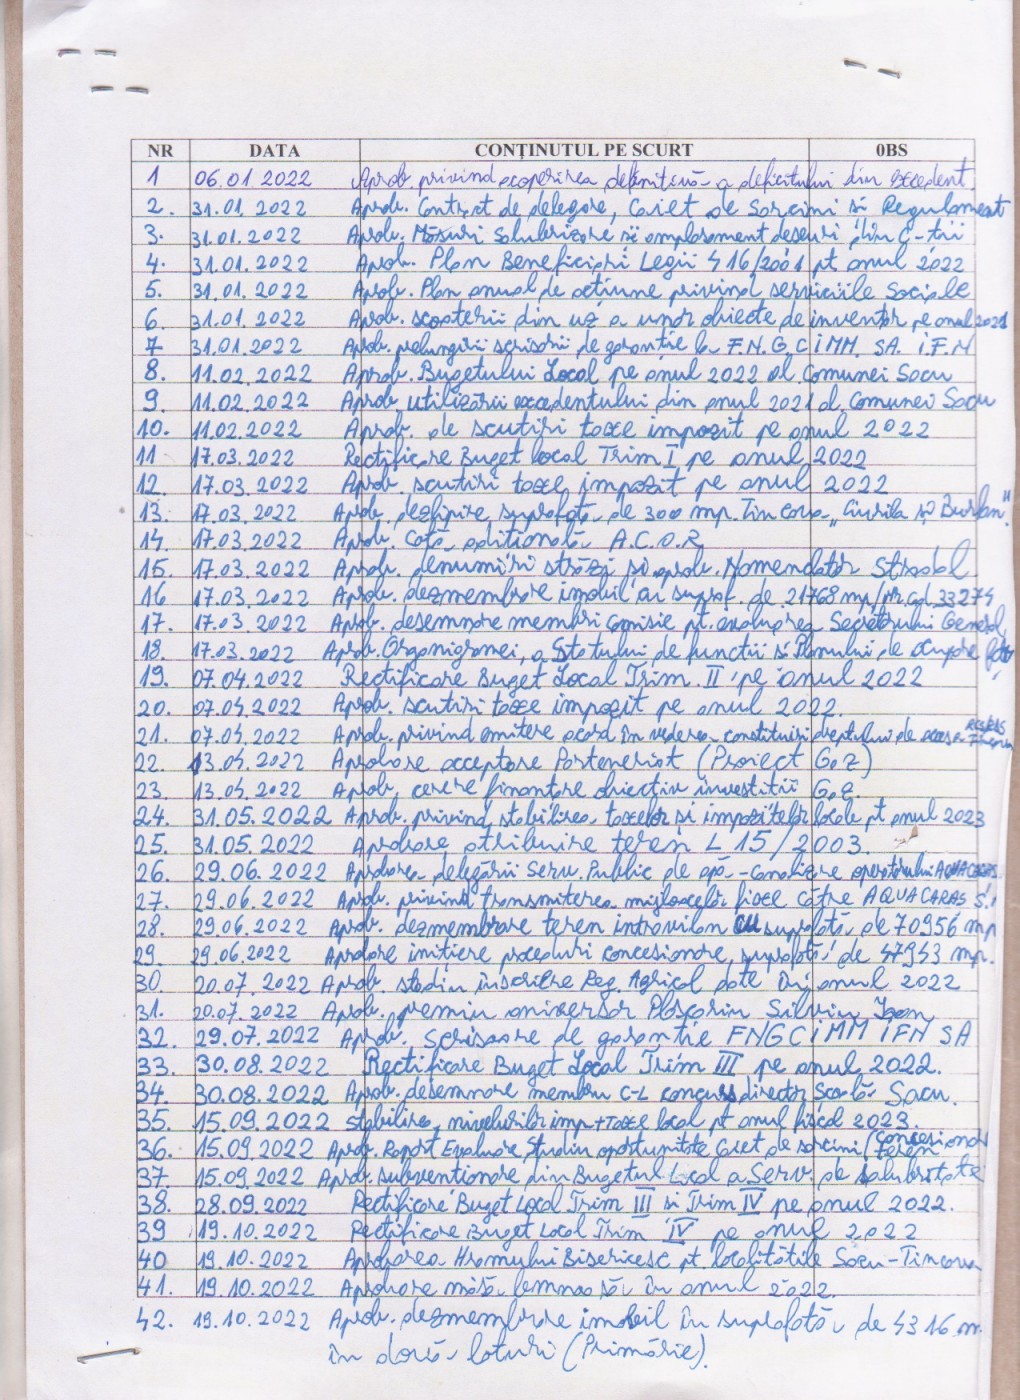 NR DATA CONȚINUTUL PE SCURT 0BS
1 06.01.2022 Aprob. privind acoperirea definitivă a deficitului din excedent.
2. 31.01.2022 Aprob. Contract de delegare, Caiet de Sarcini si Regulament
3. 31.01.2022 Aprob. Măsuri Salubrizare si amplasament deseuri din C-tii
4. 31.01.2022 Aprob. Plan Beneficiari Legii 416/2001 pt anul 2022
5. 31.01.2022 Aprob. Plan anual de actiune privind serviciile Sociale
6. 31.01.2022 Aprob. scoaterii din uz a unor obiecte de inventar pe anul 2021
7 31.01.2022 Aprob. prelungirii scrisorii de garantie la F.N.G.CIMM. SA. I.F.N
8. 11.02.2022 Aprob. Bugetului Local pe anul 2022 al Comunei Sacu
9. 11.02.2022 Aprob utilizării excedentului din anul 2021 al Comunei Sacu
10. 11.02.2022 Aprob. de scutiri taxe impozit pe anul 2022
11 17.03.2022 Rectificare Buget local Trim I pe anul 2022
12. 17.03.2022 Aprob. scutiri taxe impozit pe anul 2022
13. 17.03.2022 Aprob. suprafata de 300 mp. Tincova
14. 17.03.2022 Aprob. Cotă aditională A.C.O.R
15. 17.03.2022 Aprob. denumiri străzi și aprob. Nomenclator Stradal
16 17.03.2022 Aprob. dezmembrare imobil in supraf. de 21768 mp/nr.cd 33274
17. 17.03.2022 Aprob. desemnare membri comisie pt. evaluarea Secretarului General
18. 17.03.2022 Aprob. Organigramei, a Statului de functii si Planului de ocupare
19. 07.04.2022 Rectificare Buget Local Trim. II pe anul 2022
20. 07.04.2022 Aprob. scutiri taxe impozit pe anul 2022.
21. 07.04.2022 Aprob. privind emitere acord în vederea constituirii dreptului de acces
22. 13.04.2022 Aprobare acceptare Parteneriat (Proiect Gaz)
23. 13.04.2022 Aprob. cerere finantare obiectiv investitii Gaz.
24. 31.05.2022 Aprob. privind stabilirea taxelor si impozitelor locale pt anul 2023
25. 31.05.2022 Aprobare atribuire teren L 15/2003.
26. 29.06.2022 Aprobarea delegării Serv. Public de apă-Canalizare operatorului AQUACARAS
27. 29.06.2022 Aprob. privind transmiterea mijloacelor fixe către AQUACARAS S.A
28. 29.06.2022 Aprob. dezmembrare teren intravilan cu suprafată de 70956 mp
29 29.06.2022 Aprobare initiere proceduri concesionare, suprafată de 47943 mp.
30. 20.07.2022 Aprob. stadiu înscriere Reg. Agricol date în anul 2022
31. 20.07.2022 Aprob. premiu aniversar Silviu Ioan
32. 29.07.2022 Aprob. Scrisoare de garantie FNGCIMM IFN SA
33. 30.08.2022 Rectificare Buget Local Trim III pe anul 2022.
34. 30.08.2022 Aprob. desemnare membru C-L concurs director Scoală Sacu.
35. 15.09.2022 Stabilirea nivelurilor imp+taxe local pt anul fiscal 2023.
36. 15.09.2022 Aprob. Raport Evaluare, Studiu oportunitate Caiet de sarcini (Concesionare Teren
37. 15.09.2022 Aprob. subventionare din Bugetul Local a Serv. de salubritate
38. 28.09.2022 Rectificare Buget Local Trim III si Trim IV pe anul 2022.
39 19.10.2022 Rectificare Buget Local Trim IV pe anul 2022
40 19.10.2022 Aprobarea Hramului Bisericesc pt. localitătile Sacu-Tincova
41. 19.10.2022 Aprobare masă lemnoasă în anul 2022.
42. 19.10.2022 Aprob. dezmembrare imobil în suprafată de 4316 m.
în două loturi (Primărie).